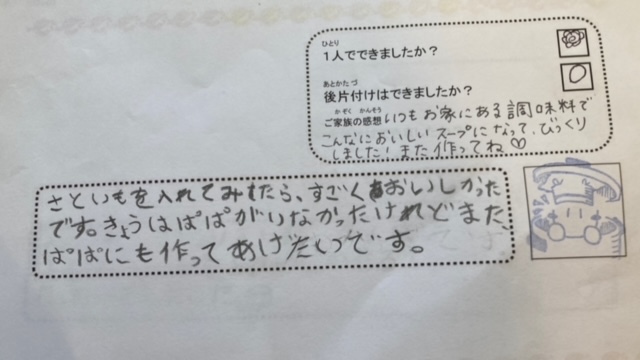 ひとり
1人でできましたか？
あとかたづ
後片付けはできましたか？
かぞく かんそう
ご家族の感想 いつもお家にある調味料で
こんなにおいしいスープになって、びっくり
しました！また作ってね♡
さといもを入れてみたら、すごくおいしかった
です。きょうはぱぱがいなかったけれどまた、
ぱぱにも作ってあげたいです。